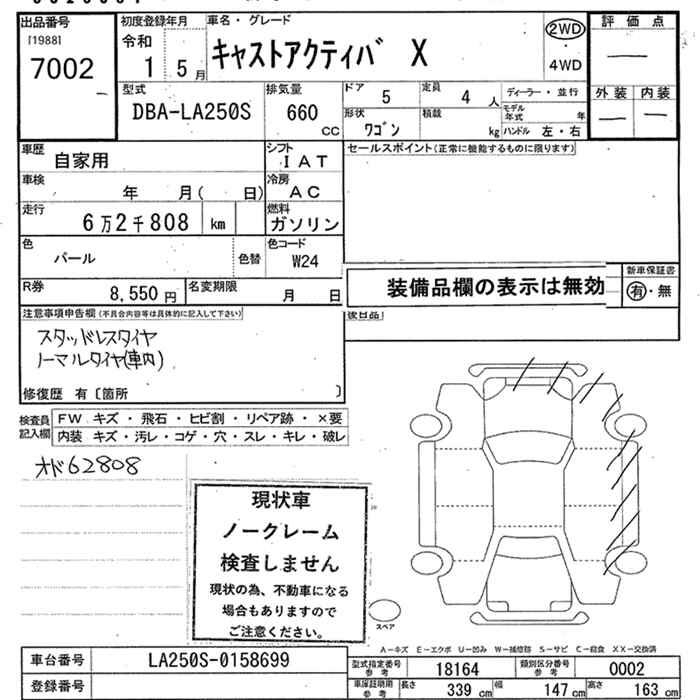 出品番号
[1988]
7002
初度登録年月
令和
1 5月
車名・グレード
キャストアクティバ X
2WD
・
4WD
評価点
外装 内装
型式
DBA-LA250S
排気量
660 CC
ドア
5
定員
4 人
形状
ワゴン
積載
kg
ディーラー・並行
モデル年式 年
ハンドル 左・右
車歴
自家用
シフト
IAT
車検
年 月( 日)
冷房
AC
走行
6万2千808 km
燃料
ガソリン
色
パール
色替
色コード
W24
R券
8,550 円
名変期限
月 日
セールスポイント(正常に機能するものに限ります)
装備品欄の表示は無効
新車保証書
有・無
後日品
注意事項申告欄(不具合内容等は具体的に記入して下さい)
スタッドレスタイヤ
ノーマルタイヤ(車内)
修復歴 有〔箇所 〕
検査員記入欄
FW キズ・飛石・ヒビ割・リペア跡・×要
内装 キズ・汚レ・コゲ・穴・スレ・キレ・破レ
オド62808
現状車
ノークレーム
検査しません
現状の為、不動車になる
場合もありますので
ご注意ください。
スペア
A-キズ E-エクボ U-凹み W-補修跡 S-サビ C-腐食 XX-交換済
車台番号
LA250S-0158699
登録番号
型式指定番号
参考
18164
類別区分番号
参考
0002
車庫証明用
参考
長さ 339 cm
幅 147 cm
高さ 163 cm